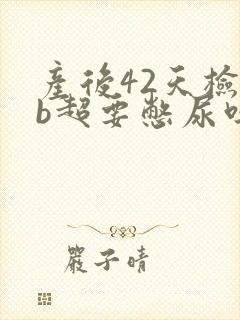 產後42天檢
b超要憋尿吗
嚴子晴